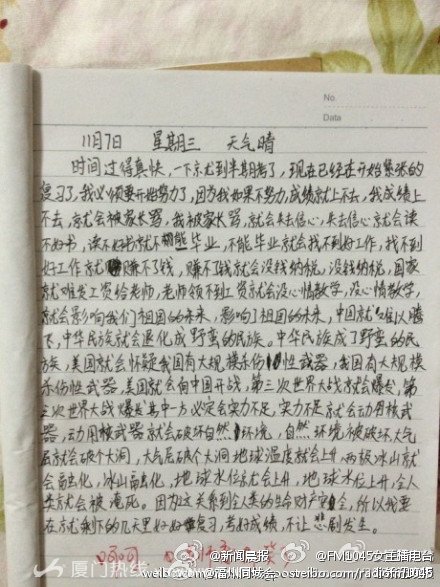 No.
Data
11月7日 星期三 天气晴
时间过得真快，一下就到半期考了，现在已经连开始紧张的
复习了，我必须要开始努力了，因为我如果不努力，成绩就上不去，我成绩上
不去，就会被家长骂，我被家长骂，就会失去信心，失去信心就会读
不好书，读不好书就不能毕业，不能毕业就会找不到好工作，我不到
好工作就赚不了钱，赚不了钱就会没钱纳税，没钱纳税，国家
就难发工资给老师，老师领不到工资就会没心情教学，没心情教学，
就会影响我们祖国的未来，影响了祖国的未来，中国就难以腾
飞，中华民族就会退化成野蛮的民族。中华民族成了野蛮的民
族，美国就会怀疑我国有大规模杀伤性武器，我国有大规模
杀伤性武器，美国就会向中国开战，第三次世界大战就会爆发，第
三次世界大战爆发其中一方必定会实力不足，实力不足就会动用核武
器，动用核武器就会破坏自然环境，自然环境被破坏，大气
层就会破个大洞，大气层破个大洞地球温度就会上升，两极冰山就
会融化，冰山融化，地球水位就会上升，地球水位上升，全人
类就会被淹死。因为这关系到全人类的生命财产安全，所以我要
在就剩下的几天里好好复习，考好成绩，不让悲剧发生。
厦门热线
@新闻晨报
@FM1045女主播电台
@福州同城会
weibo.com/radiofm1045